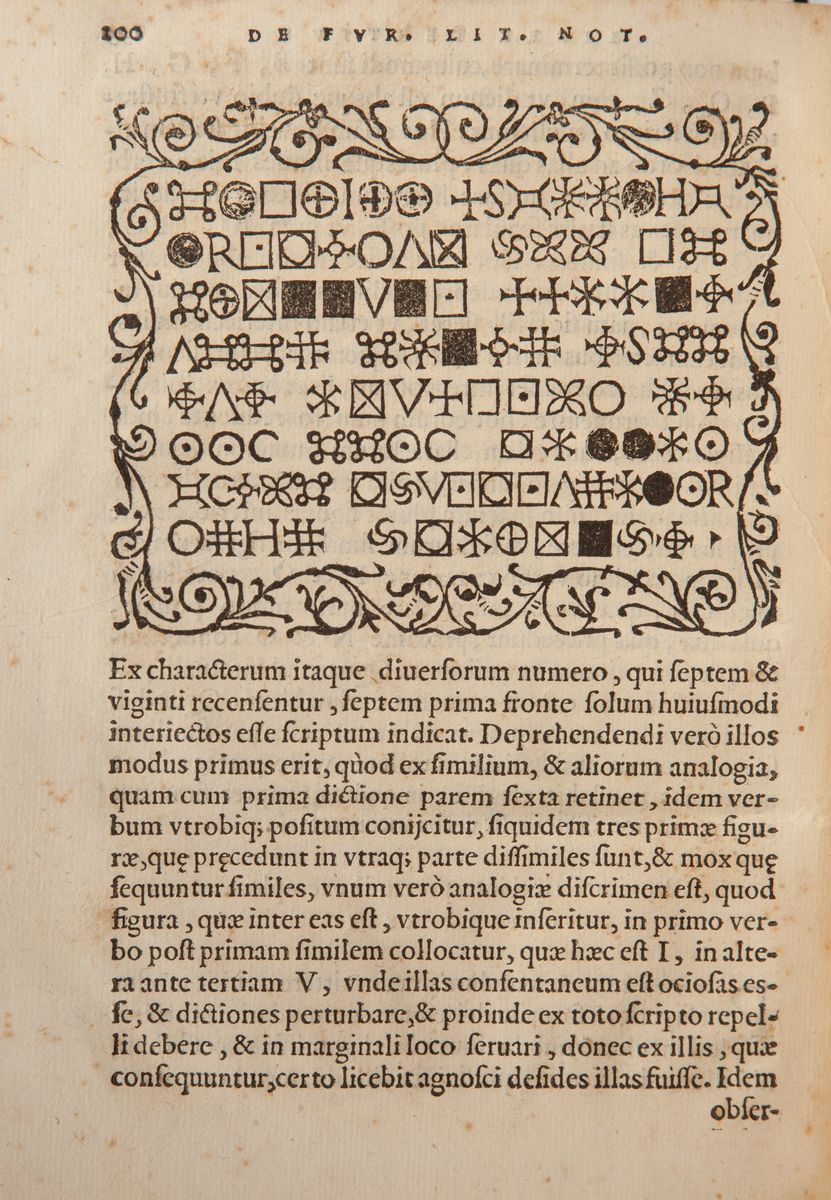 200
DE FVR. LIT. NOT.
Ex characterum itaque diuerſorum numero, qui ſeptem &
viginti recenſentur, ſeptem prima fronte ſolum huiuſmodi
interiectos eſſe ſcriptum indicat. Deprehendendi verò illos
modus primus erit, quòd ex ſimilium, & aliorum analogia,
quam cum prima dictione parem ſexta retinet, idem ver-
bum vtrobiq; poſitum conijcitur, ſiquidem tres primæ figu-
ræ, quę pręcedunt in vtraq; parte diſſimiles ſunt, & mox quę
ſequuntur ſimiles, vnum verò analogiæ diſcrimen eſt, quod
figura, quæ inter eas eſt, vtrobique inſeritur, in primo ver-
bo poſt primam ſimilem collocatur, quæ hæc eſt I, in alte-
ra ante tertiam V, vnde illas conſentaneum eſt ocioſas eſ-
ſe, & dictiones perturbare, & proinde ex toto ſcripto repel-
li debere, & in marginali loco ſeruari, donec ex illis, quæ
conſequuntur, certo licebit agnoſci deſides illas fuiſſe. Idem
obſer-